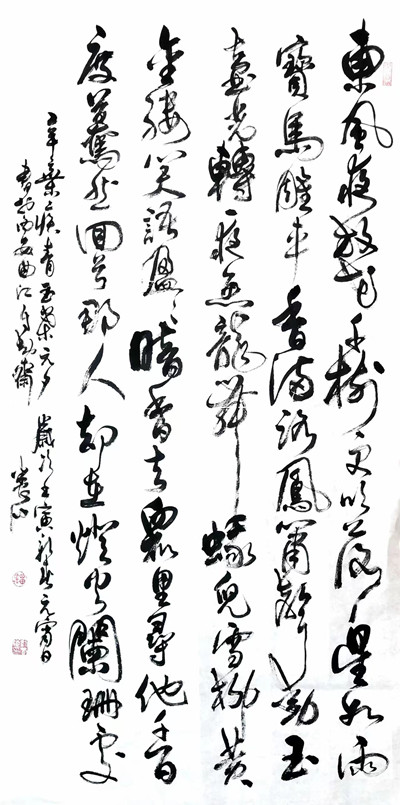 東風夜放花千樹更吹落星如雨
寶馬雕車香滿路鳳簫聲動玉
壺光轉一夜魚龍舞蛾兒雪柳黃
金縷笑語盈盈暗香去眾里尋他千百
度驀然回首那人卻在燈火闌珊處
辛棄疾青玉案元夕 歲次壬寅新春元宵日
書於西安曲江齋